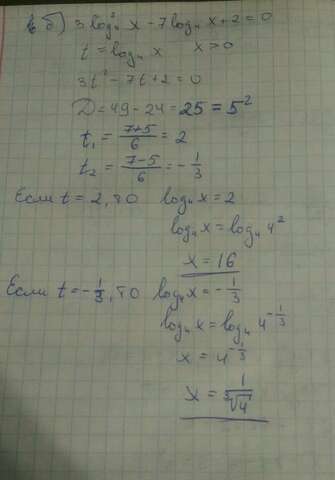 б) 3 log₄² x - 7 log₄ x + 2 = 0
t = log₄ x x > 0
3t² - 7t + 2 = 0
D = 49 - 24 = 25 = 5²
t₁ = (7+5)/6 = 2
t₂ = (7-5)/6 = - 1/3
Если t = 2, то log₄ x = 2
log₄ x = log₄ 4²
x = 16
Если t = - 1/3, то log₄ x = - 1/3
log₄ x = log₄ 4^(- 1/3)
x = 4^(- 1/3)
x = 1/∛4